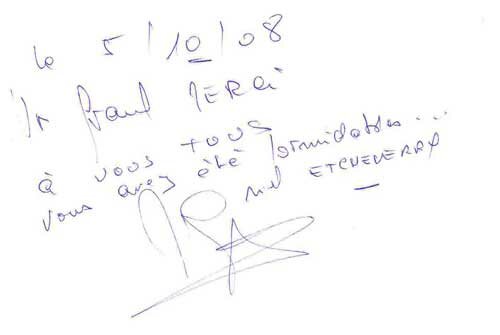 le 5/10/08
Un grand MERCi
à vous tous
vous avez été formidables...
ETCHEVERRY